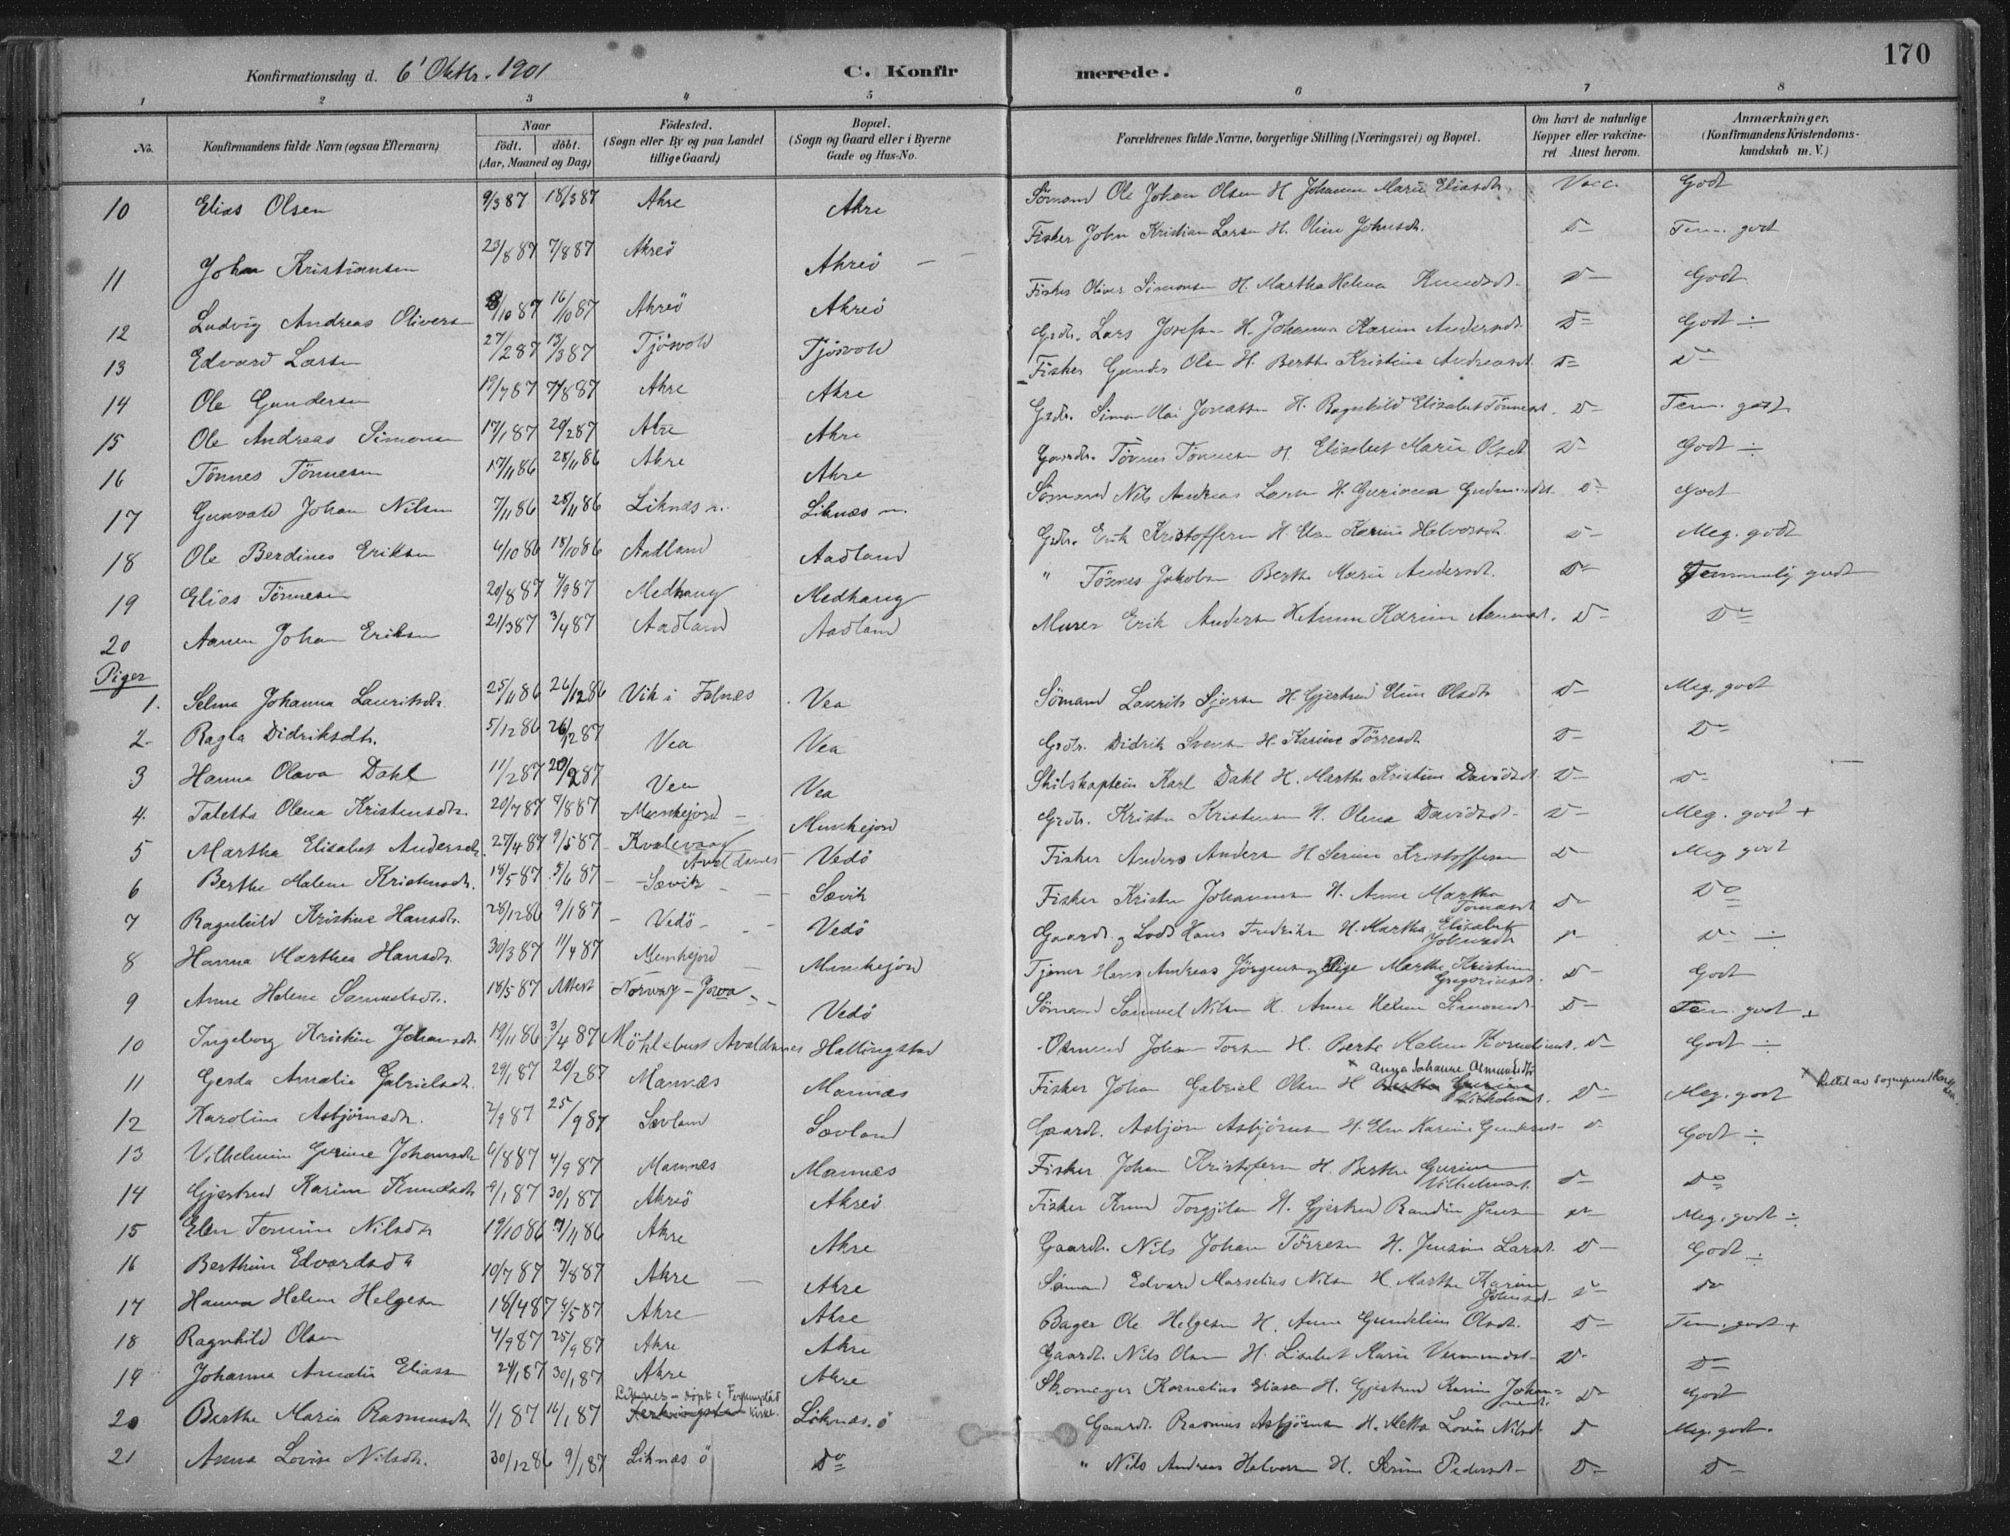 170
Konfirmationsdag d. 6' Oktbr. 1901
C. Konfirmerede.
1 2 3 4 5 6 7 8
No. Konfirmandens fulde Navn (ogsaa Efternavn) Naar födt. döbt. (Aar, Maaned og Dag) Födested. (Sogn eller By og paa Landet tillige Gaard) Bopæl. (Sogn og Gaard eller i Byerne Gade og Hus-No. Forældrenes fulde Navne, borgerlige Stilling (Næringsvei) og Bopæl. Om havt de naturlige Kopper eller vakcineret Attest herom. Anmærkninger. (Konfirmandens Kristendomskundskab m. V.)
10 Elias Olsen 9/3 87 18/3 87 Akre Akre Sømand Ole Johan Olsen H. Johanne Marie Eliasdt. Vacc. Godt
11 Johan Kristiansen 23/8 87 7/8 87 Akreö Akreö Fisker John Kristian Larsen H. Oline Johnsdt. D— Tem. godt
12 Ludvig Andreas Olivers 8/10 87 16/10 87 Akreö Akreö Fisker Oliver Simonsen H. Martha Helena Knudsdt. D— Godt
13 Edvard Larsen 27/2 87 13/3 87 Tjösvold Tjösvold Grdr. Lars Josefsen H. Johanna Karine Andersdt. D— Godt ÷
14 Ole Gundersen 19/7 87 7/8 87 Akre Akre Fisker Gunder Olsen H. Berthe Kristine Andreasdt. D— Do
15 Ole Andreas Simonsen 17/1 87 20/2 87 Akre Akre Grdr. Simon Mai Jonassen H. Ragnhild Elisabet Tönnesdt. D— Tem. godt
16 Tönnes Tönnesen 17/11 86 28/11 86 Akre Akre Gaardr. Tönnes Tönnesen H. Elisabet Marie Olsdt. D— Godt ÷
17 Gunvald Johan Nilsen 7/11 86 28/11 86 Liknæs n. Liknæs n. Sømand Nils Andreas Larsen H. Guriana Gudmundsdt. D— Godt
18 Ole Berdines Eriksen 4/10 86 18/10 86 Aadland Aadland Grdr. Erik Kristoffersen H. Elen Karine Halvorsdt. D— Meg. godt
19 Elias Tönnesen 20/8 87 4/9 87 Medhaug Medhaug " Tönnes Jakobsen Berthe Marie Andersdt. D— Temmelig godt
20 Aanen Johan Eriksen 21/3 87 3/4 87 Aadland Aadland Murer Erik Andersen H. Anna Karine Aanensdt. D— Do
Piger
1. Selma Johanna Lauritsdt. 25/11 86 26/12 86 Vik i Falnæs Vea Sømand Laurits Sjursen H. Gjertrud Eline Olsdt. D— Meg. godt
2 Ragla Didriksdt. 5/12 86 26/12 87 Vea Vea Grdr. Didrik Svensen H. Karine Törresdt. D— Do
3 Hanna Olava Dahl 11/2 87 20/2 87 Vea Vea Skibskaptein Karl Dahl H. Marthe Kristine Davidsdt. D— D—
4. Taletta Olena Kristensdt. 20/7 87 7/8 87 Munkejord Munkejord Grdr. Kristen Kristensen H. Olena Davidsdt. D— Meg. godt +
5 Martha Elisabet Andersdt. 27/4 87 9/5 87 Kvalevaag Avaldsnes Vedö Fisker Anders Andersen H. Serine Kristoffersen D— Meg godt
6 Berthe Malene Kristensdt. 18/5 87 5/6 87 Sævik Sævik Fisker Kristen Johannesen H. Anne Martha Tomasdt. D— Do
7 Ragnhild Kristine Hansdt. 28/12 86 9/1 87 Vedö Vedö Gaardr. og Lods Hans Fredriksen H. Martha Elisabet Johnsdt. D— Do ÷
8 Hanna Marthea Hansdt. 30/3 87 11/4 87 Munkejord Munkejord Tjener Hans Andreas Jörgensen og Pige Marthe Kristine Gregoriusdt. D— Godt
9 Anne Helene Samuelsdt. 18/5 87 Attest Norway - Jowa Vedö Sømand Samuel Nilsen H. Anne Helene Simonsdt. D— Tem. godt +
10 Ingeborg Kristine Johansdt. 19/11 86 3/4 87 Möhlebust Avaldsnes Hallingstad Osmund Johan Torsen H. Berte Malene Korneliusdt. D— Godt ÷
11 Gerda Amalie Gabrielsdt. 29/1 87 20/2 87 Mannæs Mannæs Fisker Johan Gabriel Olsen H. × Anna Johanne Asmundsdtr. Bertha Gurine Vilhelmsdt. D— Meg. godt × Rettet av sogneprest
12 Karoline Asbjörnsdt. 2/9 87 25/9 87 Sævland Sævland Gaardr. Asbjörn Asbjörnsen H. Elen Karine Gundersdt. D Godt ÷
13 Vilhelmine Gurine Johansdt. 6/8 87 4/9 87 Mannæs Mannæs Fisker Johan Kristofersen H. Berthe Gurine Vilhelmsdt. D— Do
14 Gjertrud Karine Knudsdt. 4/1 87 30/1 87 Akreö Akreö Fisker Knud Torgjilsen H. Gjertrud Randine Jensen D— Meg. godt ÷
15 Elen Tomine Nilsdt. 19/10 86 7/11 86 Akre Akre Gaardr. Nils Johan Törresen H. Jensine Larsdt. D— Godt ÷
16 Berthine Edvardsdt. 10/7 87 7/8 87 Akre Akre Sømand Edvard Marselius Nilsen H. Marthe Karine Johnsdt. D— Do
17 Hanna Helene Helgesen 18/4 87 6/5 87 Akre Akre Bager Ole Helgesen H. Anne Gundeline Olsdt. D— Tem. godt +
18 Ragnhild Olsen 4/9 87 25/9 87 Akre Akre Gaardr. Nils Olsen H. Lisabet Marie Vermundsdt. D— D—
19 Johanna Amalie Eliassen 24/1 87 30/1 87 Akre Akre Skomager Kornelius Eliasen H. Gjertrud Karine Johannesdt. D— Godt
20 Berthe Maria Rasmusdt. 1/1 87 16/1 87 Liknes - döpt i Ferkingstad Kirke. Ferkingstad Liknæs ö Gaardr. Rasmus Asbjörnsen H. Metta Lovise Nilsdt. D Meg. godt.
21 Anna Lovise Nilsdt. 30/12 86 9/1 87 Liknæs ö Do " Nils Andreas Halvorsen H. Serine Pedersdt. D— D—